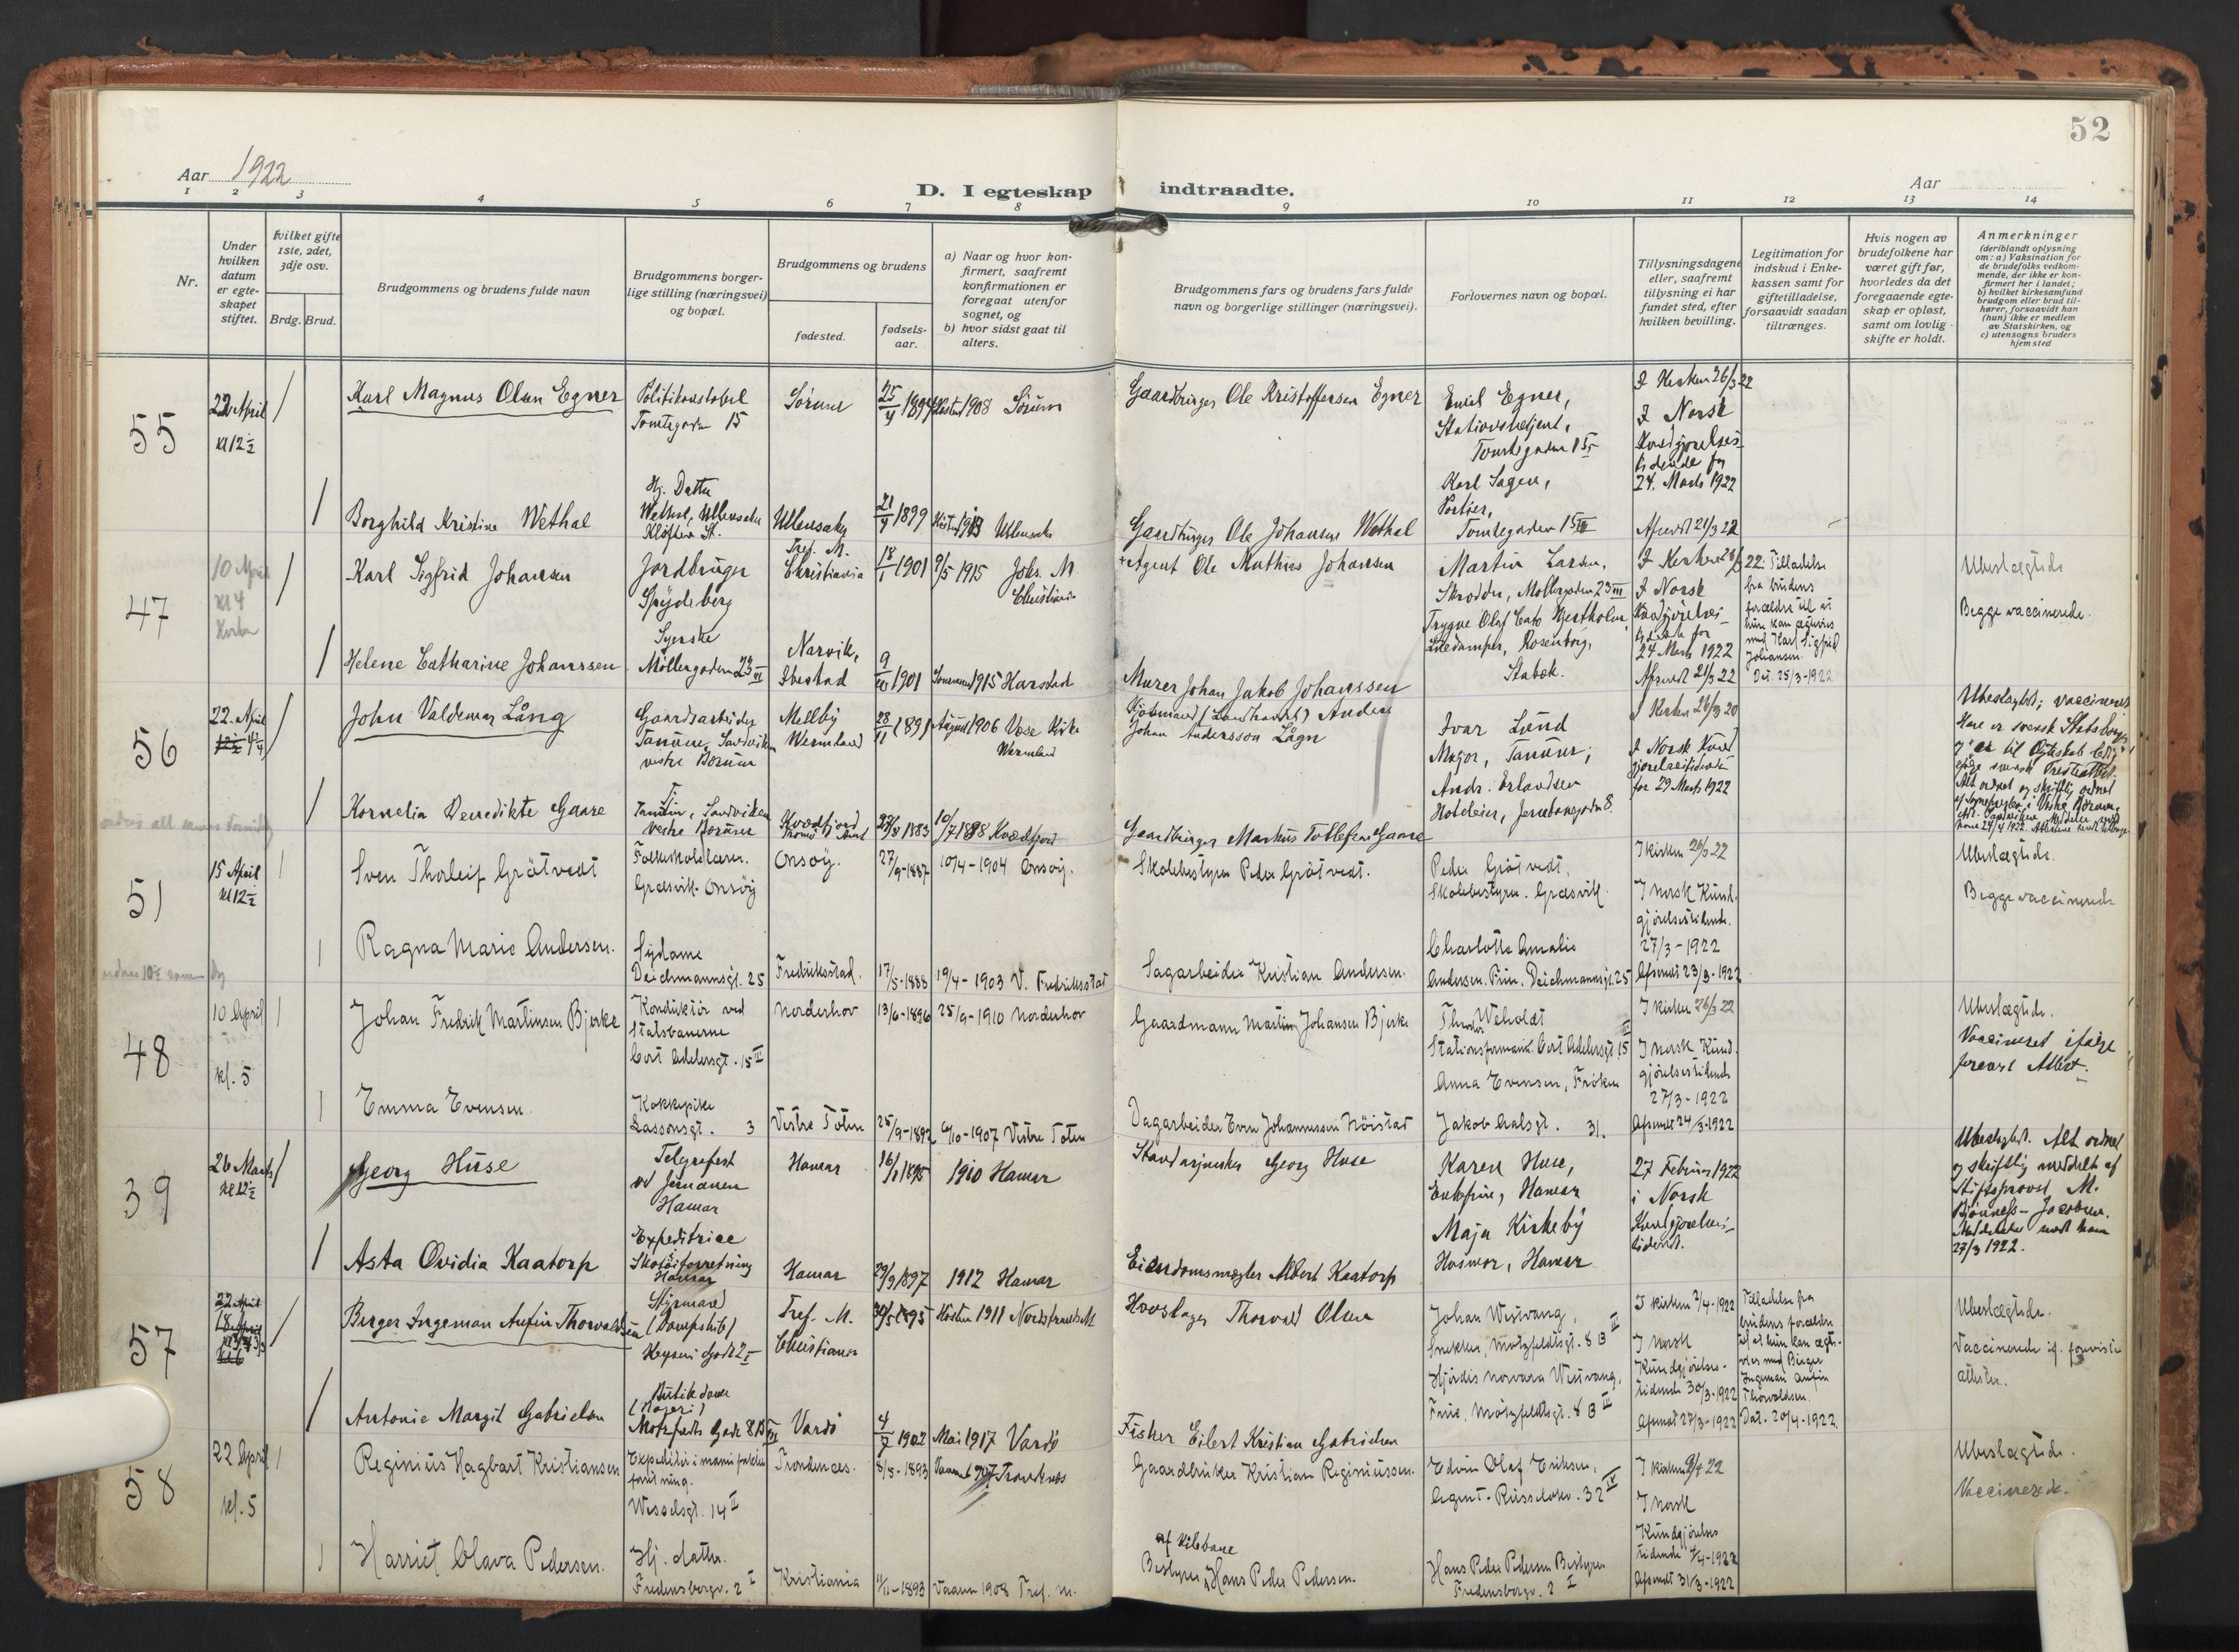 52
Aar 1922
D. I egteskap indtraadte.
Aar
1 2 3 4 5 6 7 8 9 10 11 12 13 14
Nr.
Under hvilken datum er egteskapet stiftet.
Hvilket gifte 1ste, 2det, 3dje osv.
Brdg. Brud.
Brudgommens og brudens fulde navn
Brudgommens borgerlige stilling (næringsvei) og bopæl.
Brudgommens og brudens
fødested.
fødselsaar.
a) Naar og hvor konfirmert, saafremt konfirmationen er foregaat utenfor sognet, og
b) hvor sidst gaat til alters.
Brudgommens fars og brudens fars fulde navn og borgerlige stillinger (næringsvei).
Forlovernes navn og bopæl.
Tillysningsdagene eller, saafremt tillysning ei har fundet sted, efter hvilken bevilling.
Legitimation for indskud i Enkekassen samt for giftetilladelse, forsaavidt saadan tiltrænges.
Hvis nogen av brudefolkene har været gift før, hvorledes da det foregaaende egteskap er opløst, samt om lovlig skifte er holdt.
Anmerkninger
(deriblandt oplysning om: a) Vaksination for de brudefolks vedkommende, der ikke er konfirmert her i landet;
b) hvilket kirkesamfund brudgom eller brud tilhører, forsaavidt han (hun) ikke er medlem av Statskirken, og
c) utensogns bruders hjemsted
55
22 April
kl 12½
Karl Magnus Olsen Egner
Politikonstabel
Tomtegaden 15
Sørum
1908 Sørum
Gaardbruger Ole Kristoffersen Egner
Emil Egner,
Stationsbetjent,
Tomtegaden 15
Karl Sagen,
Portier,
Tomtegaden 15 III
I Kirken 26/3 22
I Norsk
Kundgjørelses-
tidende for
24. Marts 1922
Afsendt 21/3 22
Borghild Kristine Wethal
Hj. Datter
Wethal, Ullensaker
Kløften St.
Ullensaker
21/9 1899
Høsten 1913 Ullensaker
Gaardbruger Ole Johansen Wethal
47
10 April
kl 4
Kirken
Karl Sigfrid Johansen
Jordbruger
Spydeberg
Tref. M.
Christiania
18/1 1901
9/5 1915 Johs. M.
Christiania
+ Agent Ole Mathias Johansen
Martin Larsen,
Skrædder, Møllergaden 23 III
Trygve Olaf Cato Hjertholm,
Rosenborg,
Stabæk.
I Kirken 26/3 22
I Norsk
Kundgjørelses-
tidende for
24 Marts 1922
Afsendt 21/3 22
Tilladelse
fra brudens
forældre til at
hun kan ægtevies
med Karl Sigfrid
Johansen.
Dat. 25/3-1922
Ubeslægtede
Begge vaccinerede.
Helene Catharine Johanssen
Syerske
Møllergaden 23 III
Narvik,
Ibestad
9/10 1901
Sommeren 1915 Harstad
Murer Johan Jakob Johanssen
56
22. April
John Valdemar Lång
Gaardsarbeider
Tanum, Sandviken
vestre Bærum
Mellby
Wermland
28/11 1891
August 1906 Väse Kirke
Wermland
Kjøbmand (Landhandel) Anders
Johan Andersson Lågn
Ivar Lund
Major, Tanum,
Andr. Erlandsen
Hoteleier, Jernbanegaden 8
I Kirken 26/3 20
I Norsk Kund-
gjørelsestidende
for 29 Marts 1922
Ubeslægtet; vaccineret
Han er svensk Statsborger
Kornelia Benedikte Gaare
Tanum, Sandviken
Vestre Bærum
Kvædfjord
Tromsø Amt
1883
10/7 1898 Kvædfjord
Gaardbruger Markus Tollefsen Gaare
51
15 April
kl 12½
Sven Thorleif Grötvedt
Folkeskolelærer.
Græsvik. Onsöy
Onsöy.
27/9-1887
10/4-1904 Onsöy.
Skolebestyrer Peder Grötvedt.
Peder Grötvedt,
Skolebestyrer. Græsvik.
Charlotte Amalie
Andersen. Frue. Deichmannsgt. 25
I kirken 26/3 22
I Norsk Kund-
gjörelsestidende.
27/3-1922
Afsendt 23/3-1922
Ubeslægtede.
Begge vaccinerede
Ragna Marie Andersen.
Sydame
Deichmannsgt. 25
Fredriksstad.
17/5-1888
19/4-1903 V. Fredriksstad
Sagarbeider Kristian Andersen.
48
10 April
kl. 5
Johan Fredrik Martinsen Bjerke
Konduktör ved
Statsbanerne
Cort Adelersgt. 15 II
Norderhov
13/6-1896
25/9-1910 Norderhov
Gaardmann Martin Johansen Bjerke
Thodor Weholdt
Stationsformand. Cort Adelersgt 15 II
Anna Evensen, Fröken
Jakob Aalsgt. 31.
I kirken 26/3 22
I Norsk Kund-
gjörelsestidende
27/3-1922
Afsendt 24/3-1922
Ubeslægtede.
Vaccineret ifølge
forevist Attest.
Emma Evensen.
Kokkepike
Lassonsgt. 3
Vestre Toten
25/9-1892
6/10-1907 Vestre Toten
Dagarbeider Even Johannessen Höistad
39
26 Marts
kl 12½
Georg Huse
Telegrafist
ved Jernbanen
Hamar
Hamar
16/1 1895
1910 Hamar
Standarjunker Georg Huse
Karen Huse,
Enkefrue, Hamar
Maja Kirkeby
Husmor, Hamar
27 Februar 1922
i Norsk
Kundgjørelses-
tidende.
Ubeslægtet. Alt ordnet
og skriftlig meddelt af
Stiftsprovst M.
Bjønness-Jacobsen.
Meddelelse sendt ham
27/3 1922.
Asta Ovidia Kaatorp
Expeditrice
Skotøiforretning
Hamar
Hamar
29/9 1897
1912 Hamar
Eiendomsmægler Albert Kaatorp
57
22 April
Birger Ingeman Anfin Thorvaldsen
Styrmand
(Dampskib)
Tref. M.
Christiania
30/5 1895
Høsten 1911 Nordstrand M
Hovslager Thorvald Olsen
Johan Westvang,
Snekker, Motzfeldtsgt. 8 B III
Hjördis Norvara Westvang,
Frue, Motzfeldtsgt. 8 B III
I kirken 2/4-1922
I Norsk
Kundgjörelses-
tidende 30/3-1922
Afsendt 27/3-1922
Tilladelse fra
brudens forældre
til at hun kan ægte-
vies med Birger
Ingeman Anfin
Thorvaldsen.
Dat. 20/4-1922.
Ubeslægtede.
Vaccinerede if. foreviste
attester.
Antonie Margit Gabrielsen
Butikdame
(Meieri)
Motzfeldts Gade 8 B III
Vardö
4/7 1902
Mai 1917 Vardö
Fisker Eilert Kristian Gabrielsen
58
22 April
kl. 5
Reginius Hagbart Kristiansen
Expeditör i manufaktur
forretning.
Wesselsgt. 14 I
Trondenes.
8/5-1893
Vaaren 1907 Trondenes
Gaardbruker Kristian Reginiussen.
Edvin Olaf Eriksen,
Agent. Russelökv. 32 IV
I kirken 2/4 22
I Norsk
Kundgjörelses
tidende 4/4-1922
Afsendt 31/3-1922
Ubeslægtede.
Vaccinerede.
Harriet Olava Pedersen.
Hj. datter.
Fredensborgv. 2 I
Kristiania
11/11-1893
Vaaren 1908 Tref. M.
af Kilebane
Bestyrer Hans Peder Pedersen.
Hans Peder Pedersen Bestyrer
Fredensborgv. 2 I